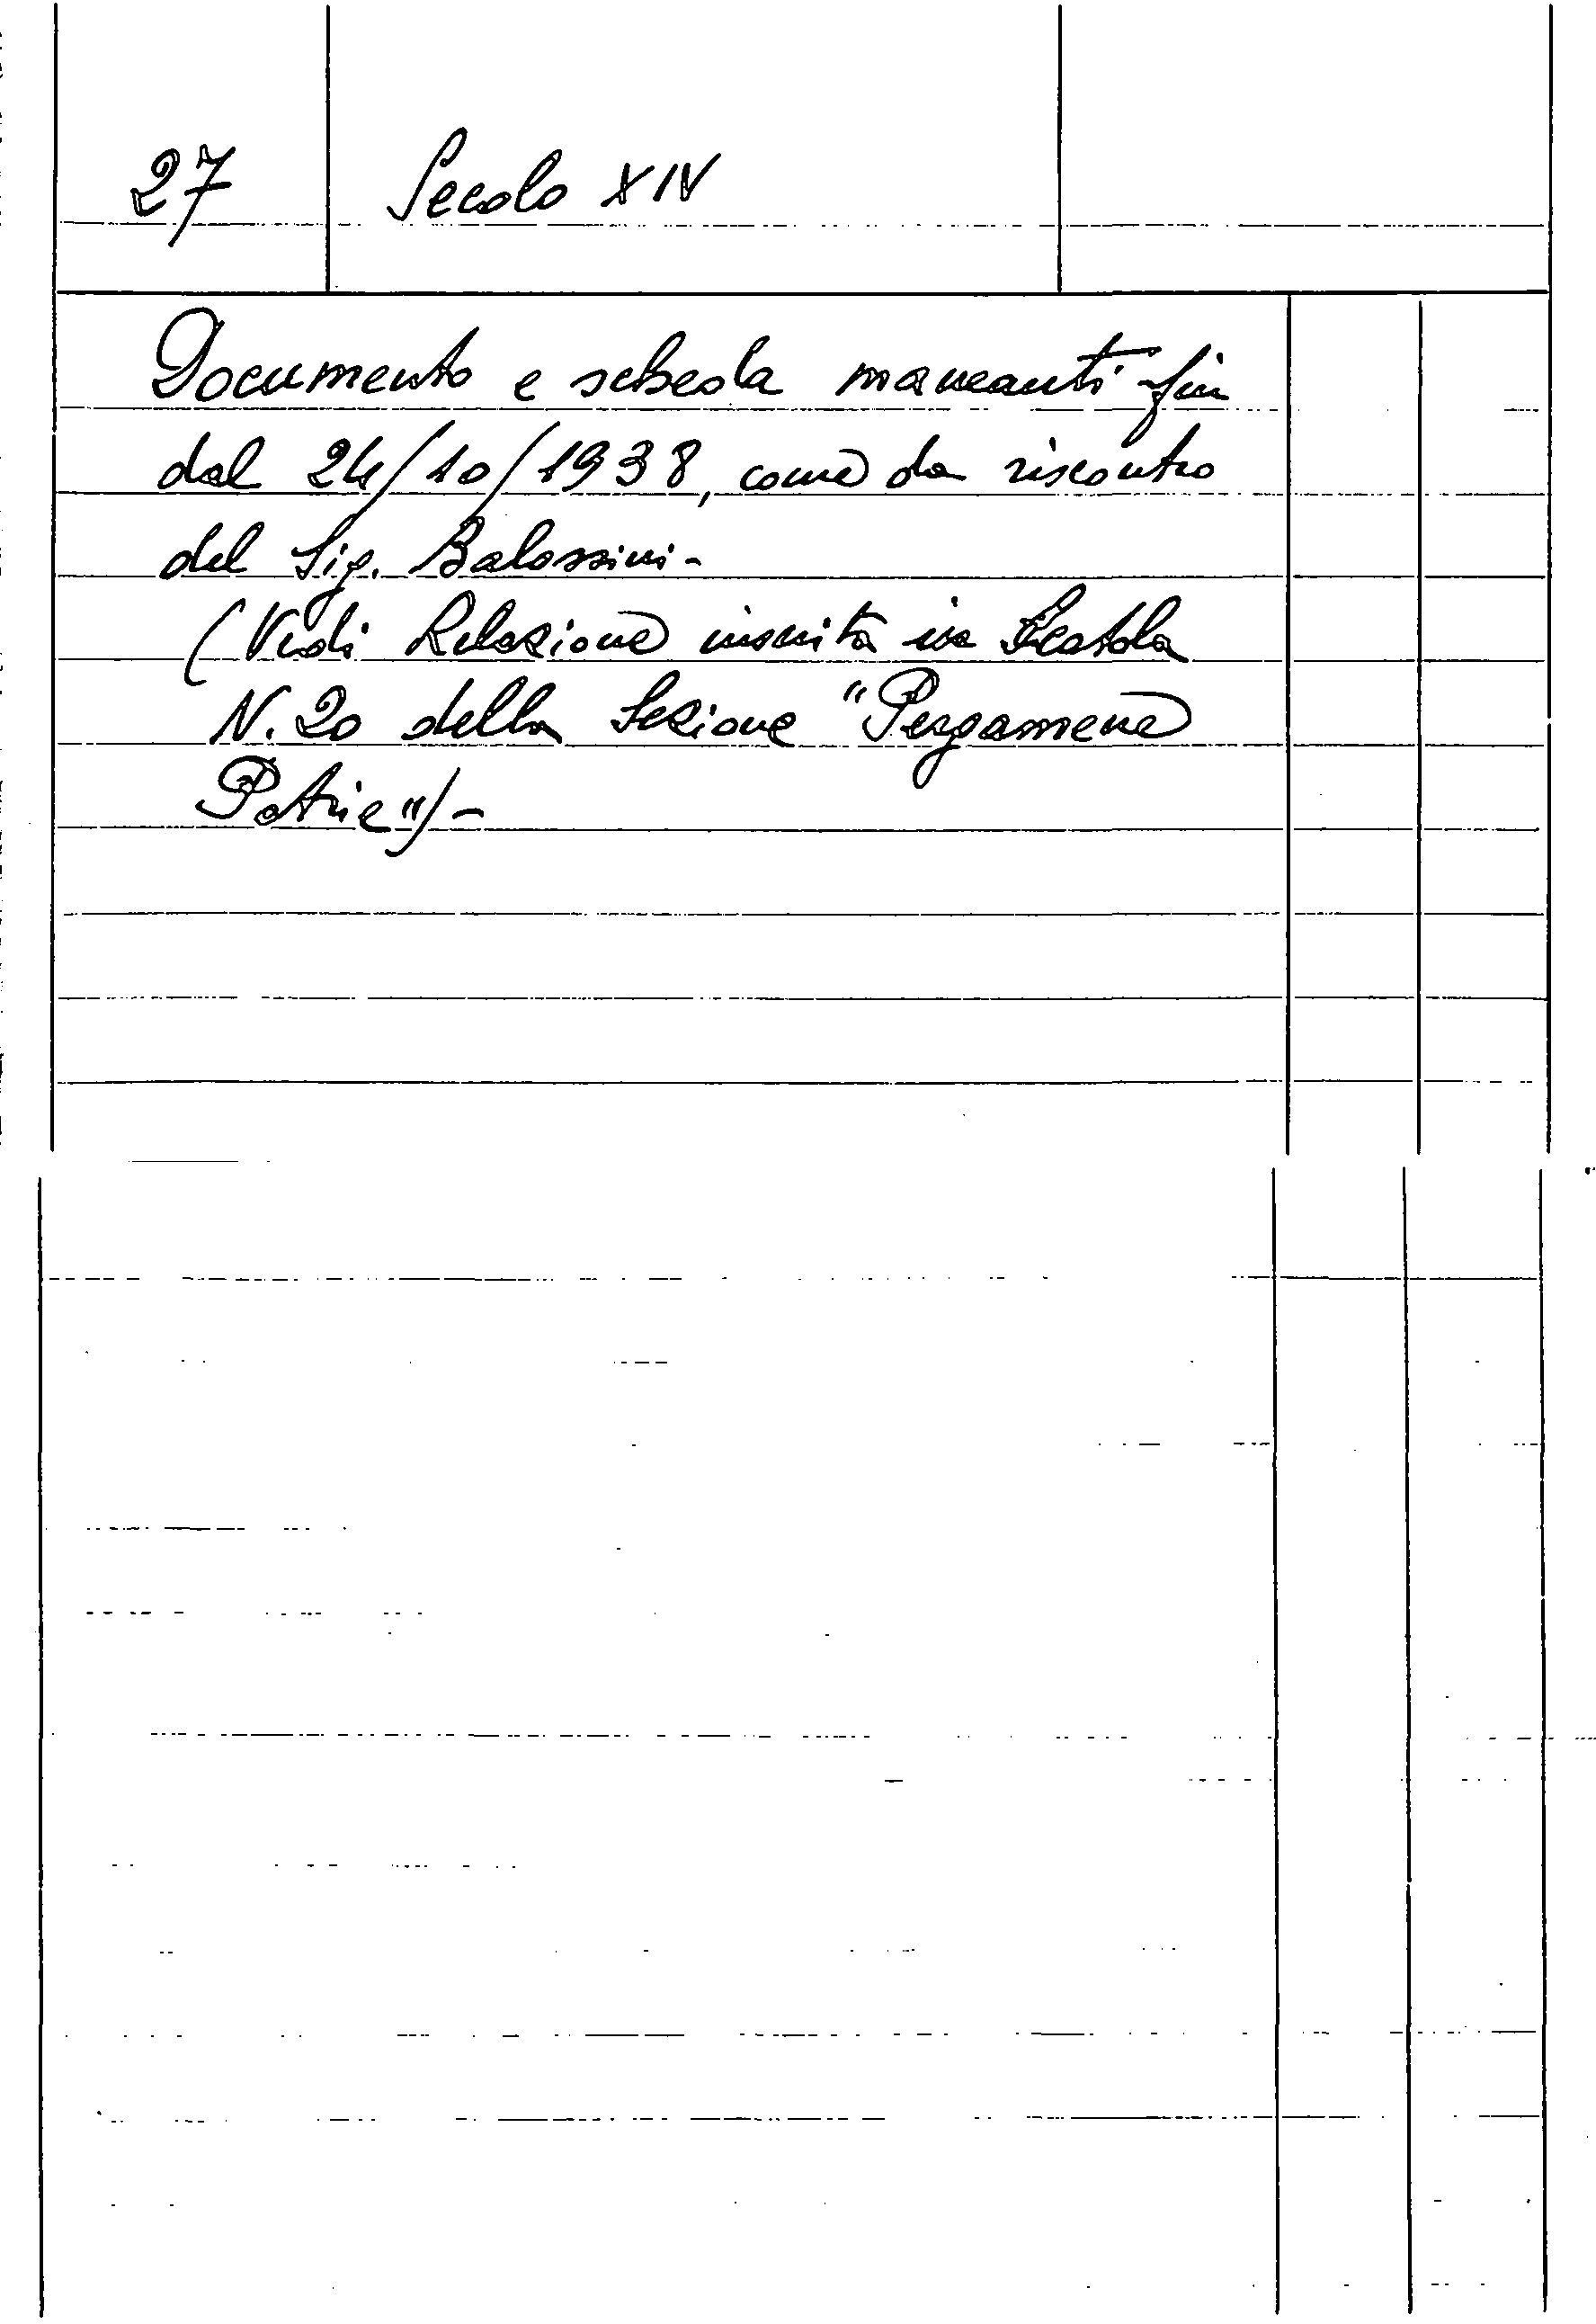 27 Secolo XIV
Documento e scheda mancanti fin
dal 24/10/1938, come da riscontro
del Sig. Balossini-
(Vedi Relazione inserita in Scatola
N. 20 della Sezione "Pergamene
Patrie")-